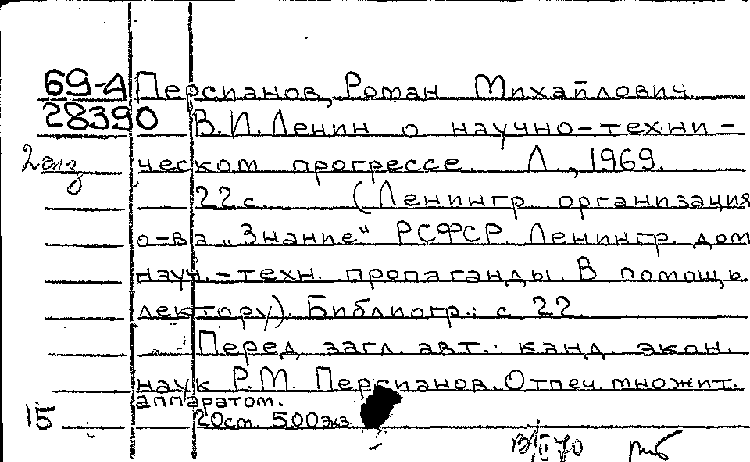 69-4 Персианов, Роман Михайлович
28390 В.И. Ленин о научно-техни-
2 экз ческом прогрессе Л., 1969.
22 с. (Ленингр. организация
о-ва „Знание“ РСФСР. Ленингр. дом
науч.-техн. пропаганды. В помощь
лектору). Библиогр.: с. 22.
Перед загл. авт.: канд. экон.
наук Р.М. Персианов. Отпеч. множит.
аппаратом.
15 20см. 500экз
70